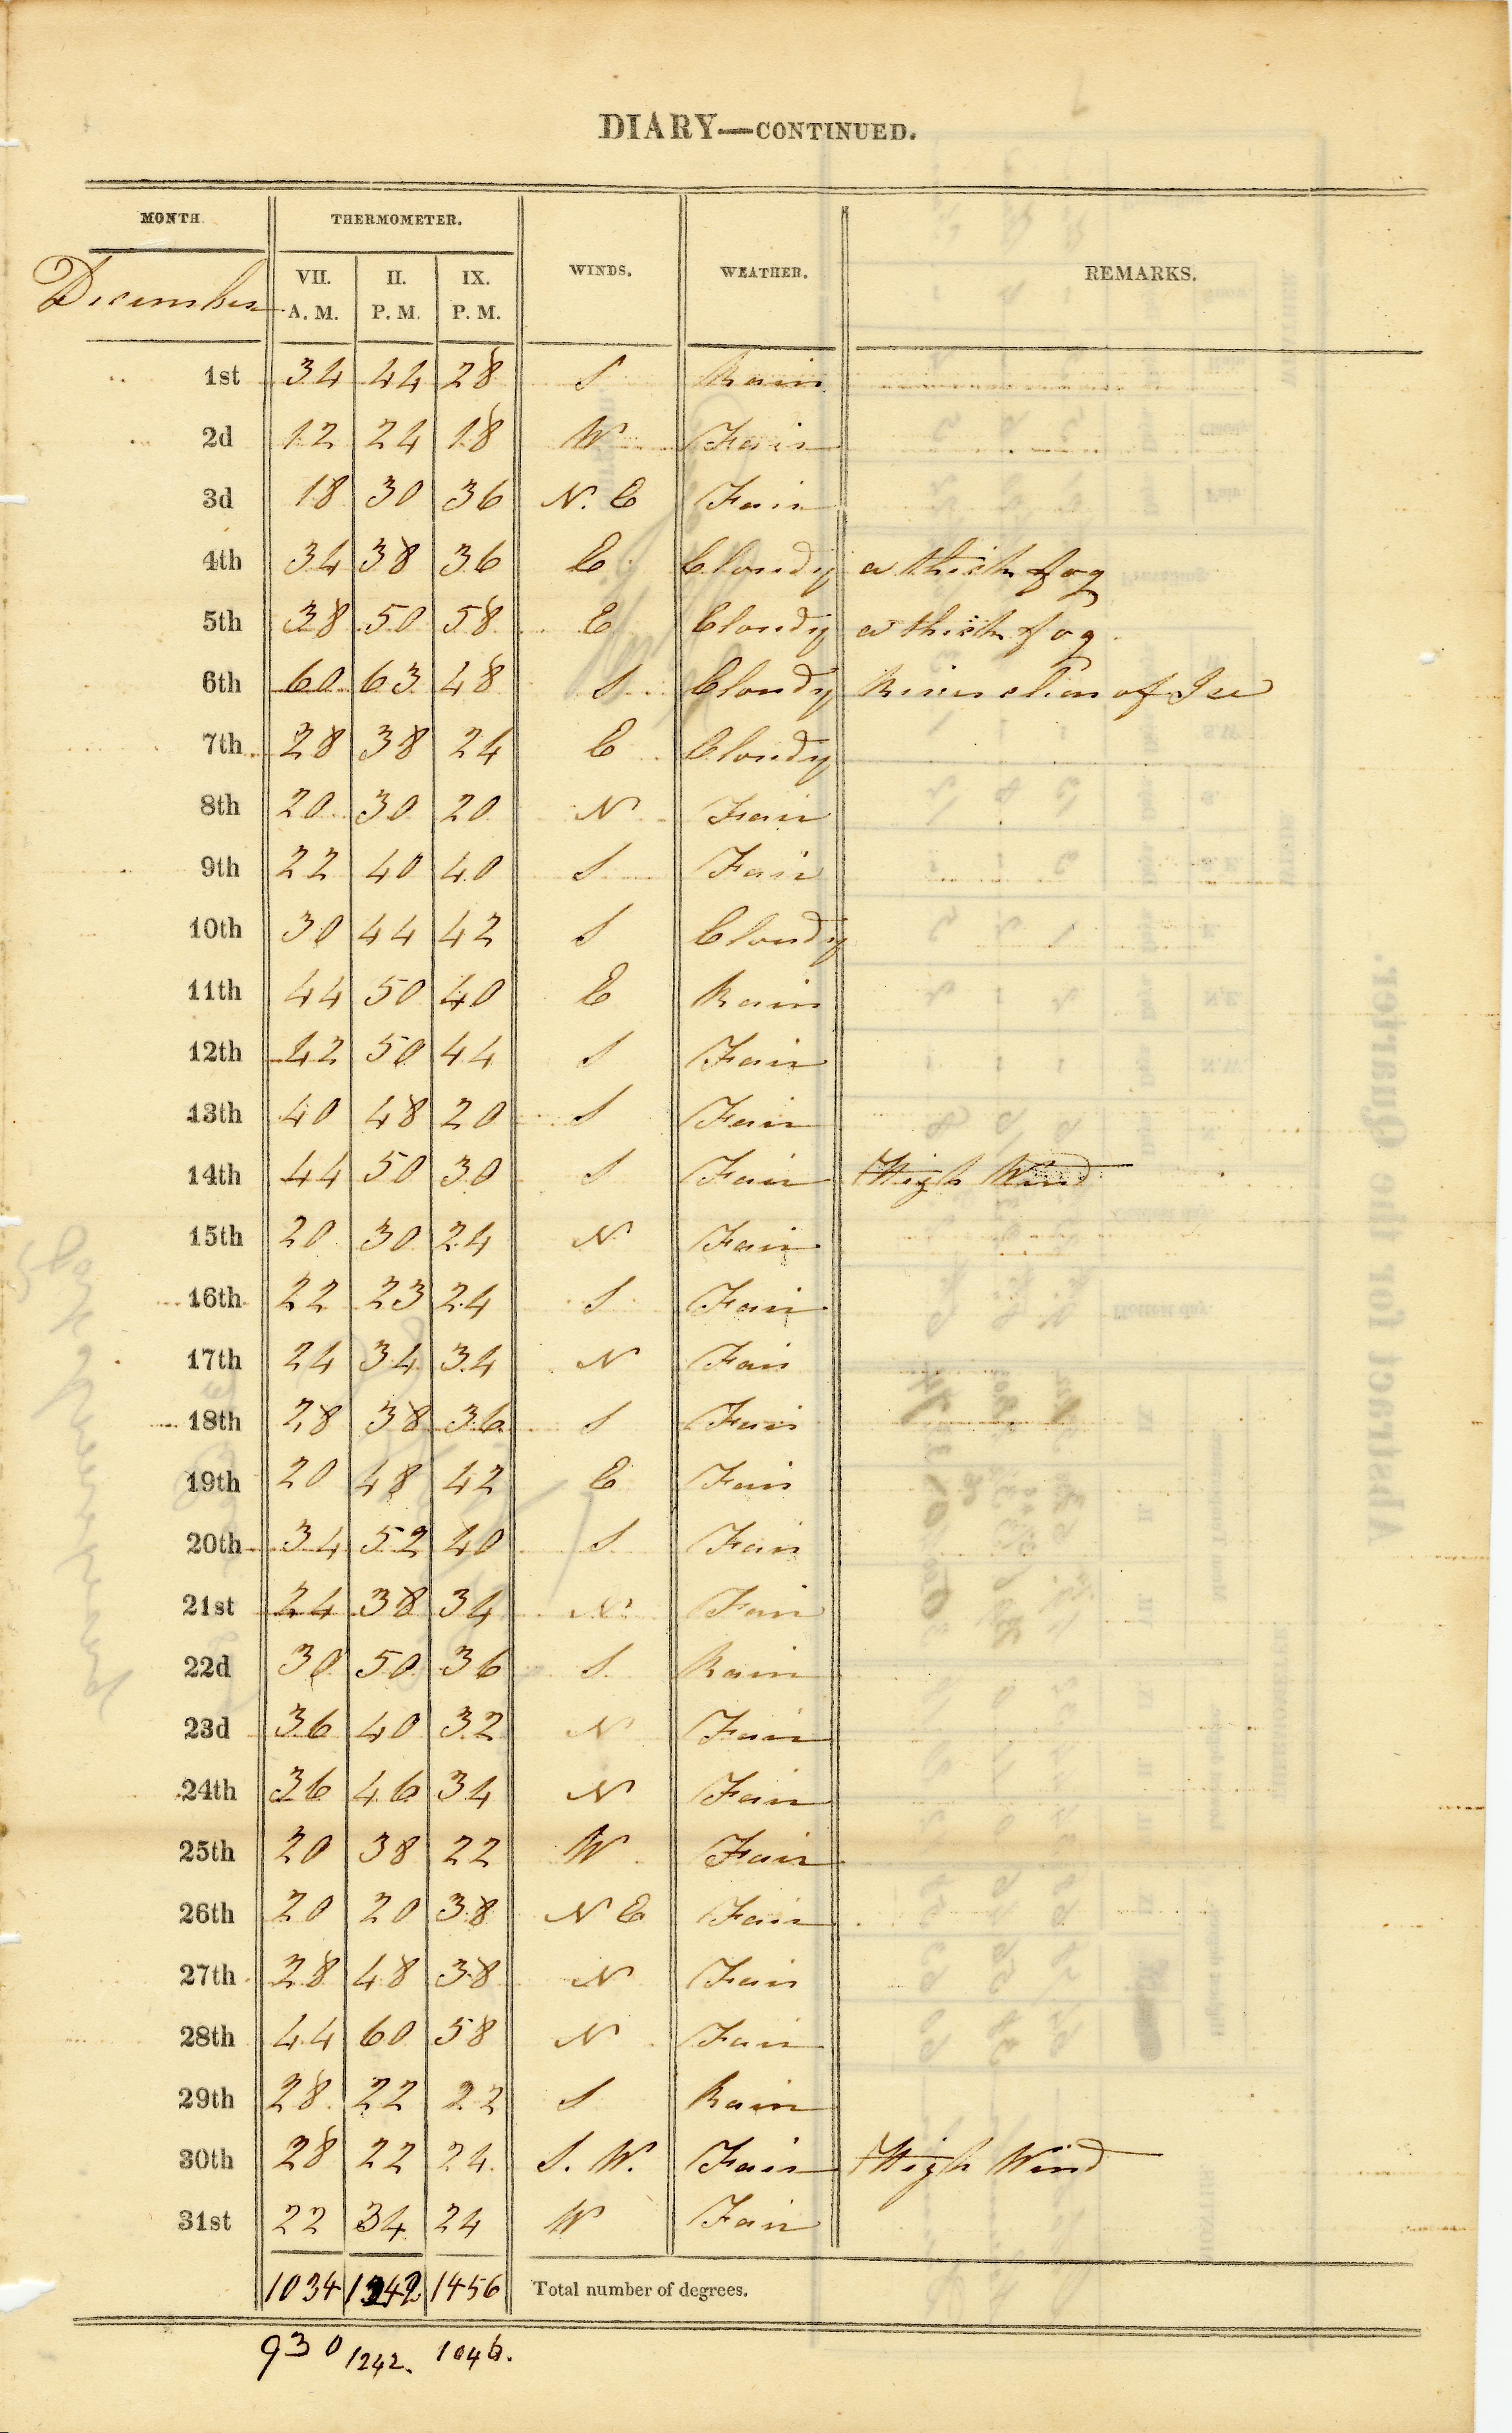 DIARY—CONTINUED.
MONTH. THERMOMETER. WINDS. WEATHER. REMARKS.
December VII. A. M. II. P. M. IX. P. M.
1st 34 44 28 S Rain
2d 12 24 18 W Fair
3d 18 30 36 N. E Fair
4th 34 38 36 E Cloudy a thick fog
5th 38 50 58 E Cloudy a thick fog
6th 60 63 48 S Cloudy River clear of Ice
7th 28 38 24 E Cloudy
8th 20 30 20 N Fair
9th 22 40 40 S Fair
10th 30 44 42 S Cloudy
11th 44 50 40 E Rain
12th 42 50 44 S Fair
13th 40 48 20 S Fair
14th 44 50 30 S Fair High Wind
15th 20 30 24 N Fair
16th 22 23 24 S Fair
17th 24 34 34 N Fair
18th 28 38 36 S Fair
19th 20 48 42 E Fair
20th 34 52 40 S Fair
21st 24 38 34 N Fair
22d 30 50 36 S Rain
23d 36 40 32 N Fair
24th 36 46 34 N Fair
25th 20 38 22 W Fair
26th 20 20 38 N E Fair
27th 28 48 38 N Fair
28th 44 60 58 N Fair
29th 28 22 22 S Rain
30th 28 22 24 S. W. Fair High Wind
31st 22 34 24 W Fair
1034 1242 1456 Total number of degrees.
930 1242. 1046.